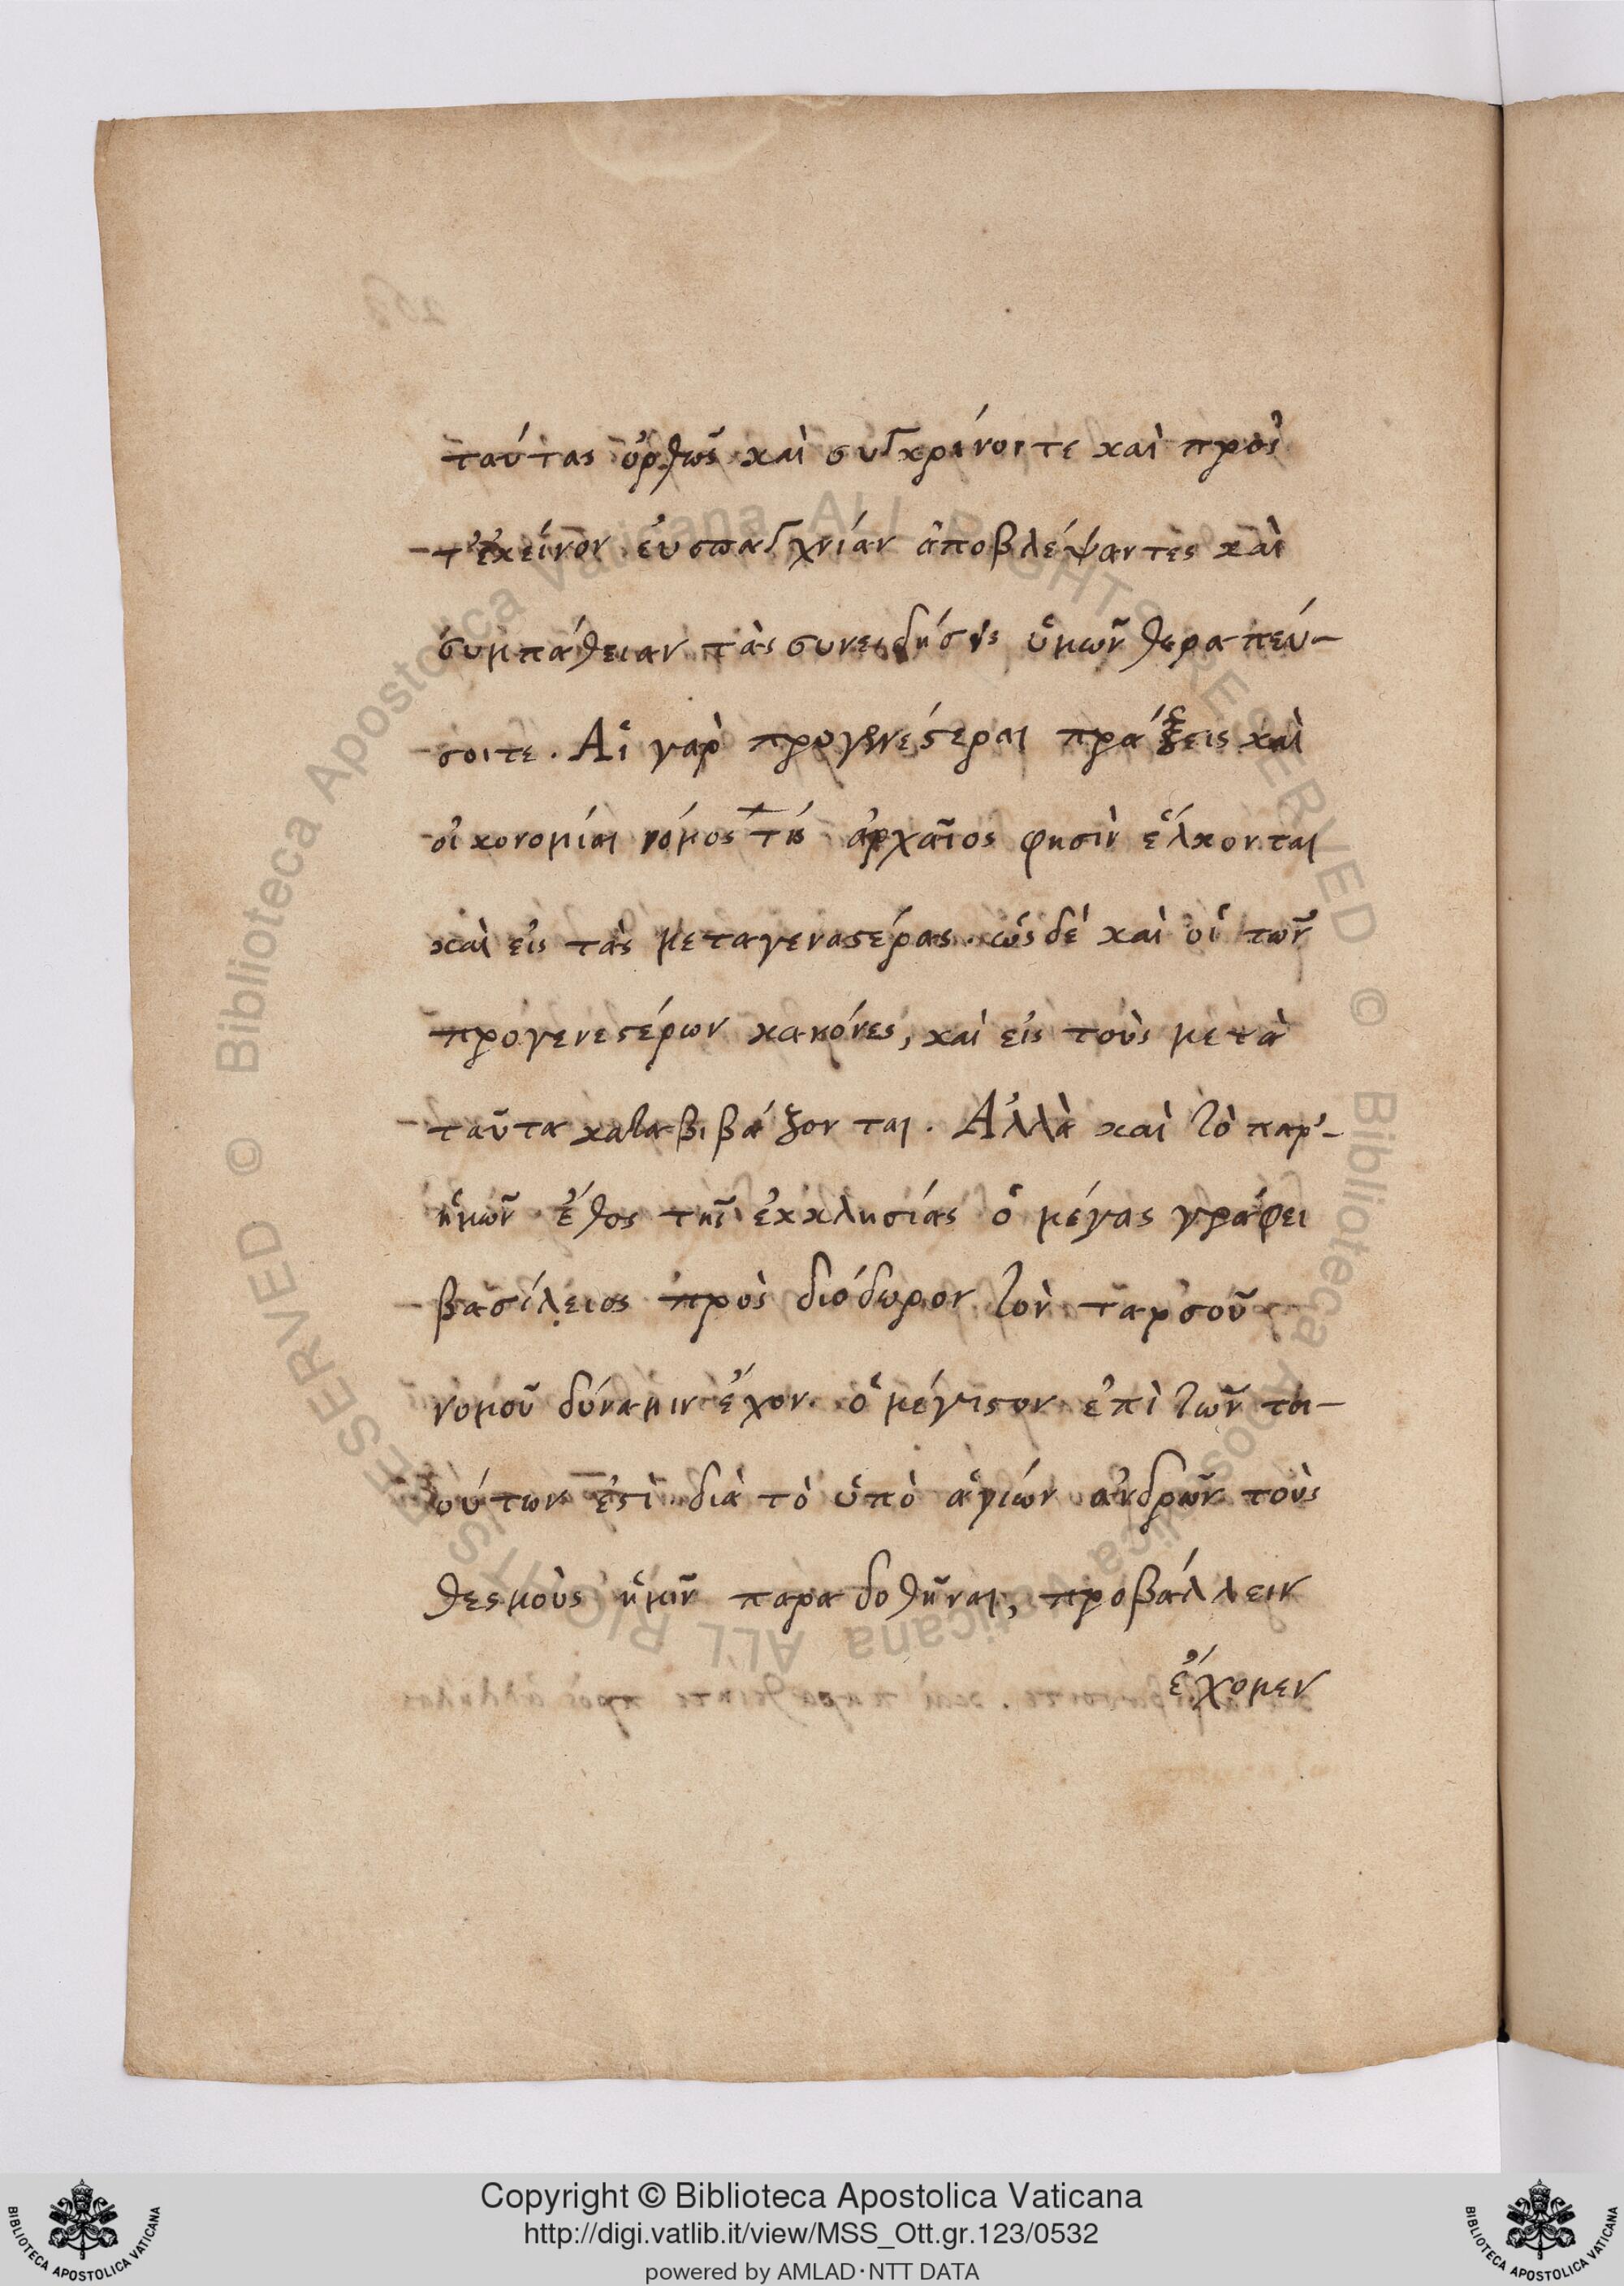 ταύτας ὀρθῶς καὶ συγκρίνοιτε καὶ πρὸς
τ' ἐκεῖνον εὐσπλαγχνίαν ἀποβλέψαντες καὶ
συμπάθειαν τὰς συνειδήσεις ὑμῶν θεραπεύ-
σοιτε. Αἱ γὰρ προγενέστεραι πράξεις καὶ
οἰκονομίαι νόμος τις ἀρχαῖος φησὶν ἕλκονται
καὶ εἰς τὰς μεταγενεστέρας. ὡς δὲ καὶ οἱ τῶν
προγενεστέρων κανόνες, καὶ εἰς τοὺς μετὰ
ταῦτα καταβιβάζονται. Ἀλλὰ καὶ τὸ παρ'-
ἡμῶν ἔθος τῆς ἐκκλησίας ὁ μέγας γράφει
βασίλειος πρὸς διόδωρον τὸν ταρσοῦ
νομοῦ δύναμιν ἔχον. ὃ μέγιστον ἐπὶ τῶν τοι-
ούτων ἐστὶ διὰ τὸ ὑπὸ ἁγίων ἀνδρῶν τοὺς
θεσμοὺς ἡμῖν παραδοθῆναι, προβάλλειν
ἔχομεν
© Biblioteca Apostolica Vaticana ALL RIGHTS RESERVED
© Biblioteca Apostolica Vaticana ALL RIGHTS RESERVED
Copyright © Biblioteca Apostolica Vaticana
http://digi.vatlib.it/view/MSS_Ott.gr.123/0532
powered by AMLAD·NTT DATA
BIBLIOTECA APOSTOLICA VATICANA
BIBLIOTECA APOSTOLICA VATICANA